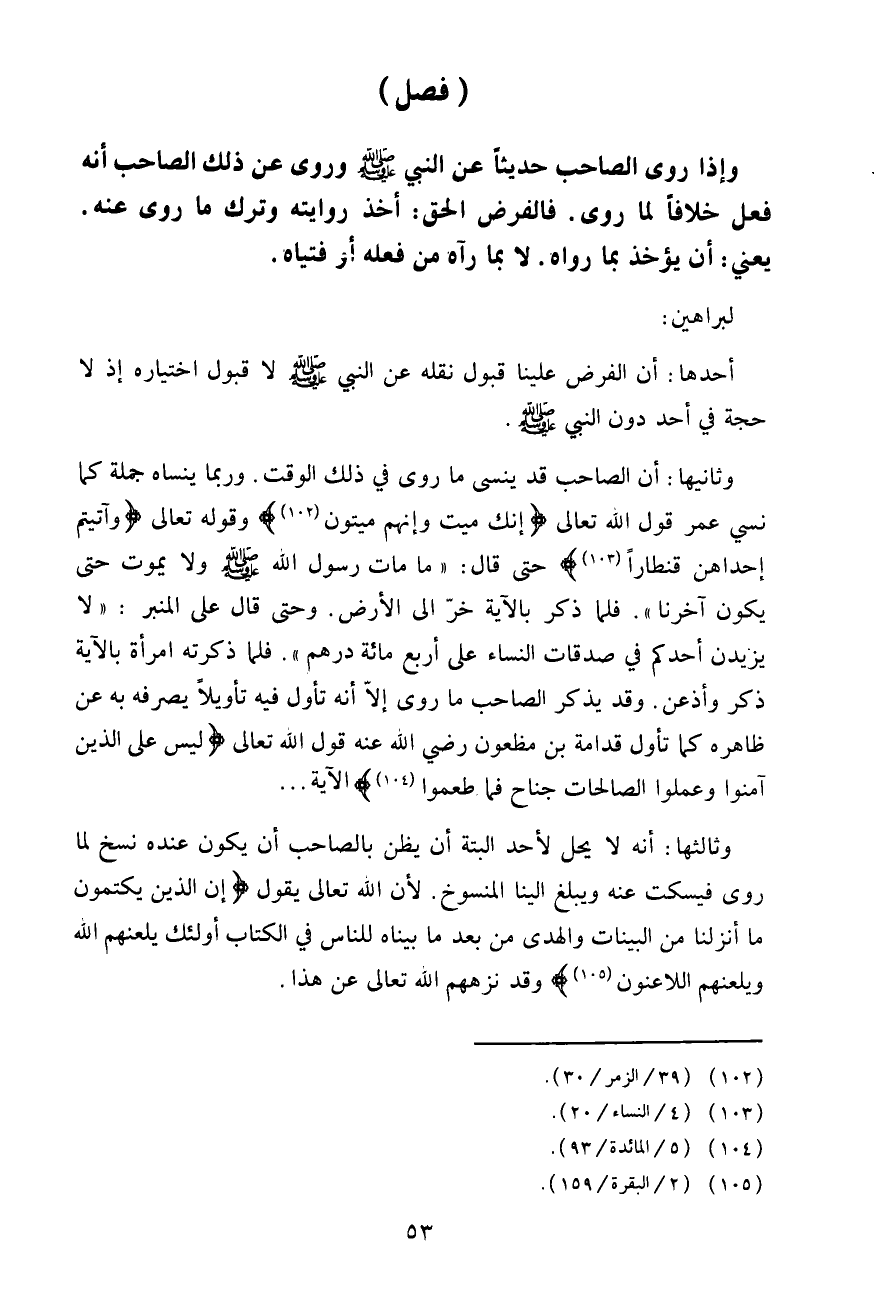 ( فصل )
وإذا روى الصاحب حديثاً عن النبي ﷺ وروى عن ذلك الصاحب أنه
فعل خلافاً لما روى. فالفرض الحق: أخذ روايته وترك ما روى عنه.
يعني: أن يؤخذ بما رواه. لا بما رآه من فعله أو فتياه.
لبراهين:
أحدها: أن الفرض علينا قبول نقله عن النبي ﷺ لا قبول اختياره إذ لا
حجة في أحد دون النبي ﷺ .
وثانيها: أن الصاحب قد ينسى ما روى في ذلك الوقت. وربما ينساه جملة كما
نسي عمر قول الله تعالى ﴿ إنك ميت وإنهم ميتون (١٠٢)﴾ وقوله تعالى ﴿ وآتيتم
إحداهن قنطاراً (١٠٣)﴾ حتى قال: « ما مات رسول الله ﷺ ولا يموت حتى
يكون آخرنا ». فلما ذكر بالآية خرّ الى الأرض. وحتى قال على المنبر : « لا
يزيدن أحدكم في صدقات النساء على أربع مائة درهم ». فلما ذكرته امرأة بالآية
ذكر وأذعن. وقد يذكر الصاحب ما روى إلاّ أنه تأول فيه تأويلاً يصرفه به عن
ظاهره كما تأول قدامة بن مظعون رضي الله عنه قول الله تعالى ﴿ ليس على الذين
آمنوا وعملوا الصالحات جناح فما طعموا (١٠٤)﴾ الآية...
وثالثها: أنه لا يحل لأحد البتة أن يظن بالصاحب أن يكون عنده نسخ لما
روى فيسكت عنه ويبلغ الينا المنسوخ. لأن الله تعالى يقول ﴿ إن الذين يكتمون
ما أنزلنا من البينات والهدى من بعد ما بيناه للناس في الكتاب أولئك يلعنهم الله
ويلعنهم اللاعنون (١٠٥)﴾ وقد نزههم الله تعالى عن هذا.
(١٠٢) (٣٩/ الزمر/ ٣٠).
(١٠٣) (٤/ النساء/ ٢٠).
(١٠٤) (٥/ المائدة/ ٩٣).
(١٠٥) (٢/ البقرة/ ١٥٩).
٥٣